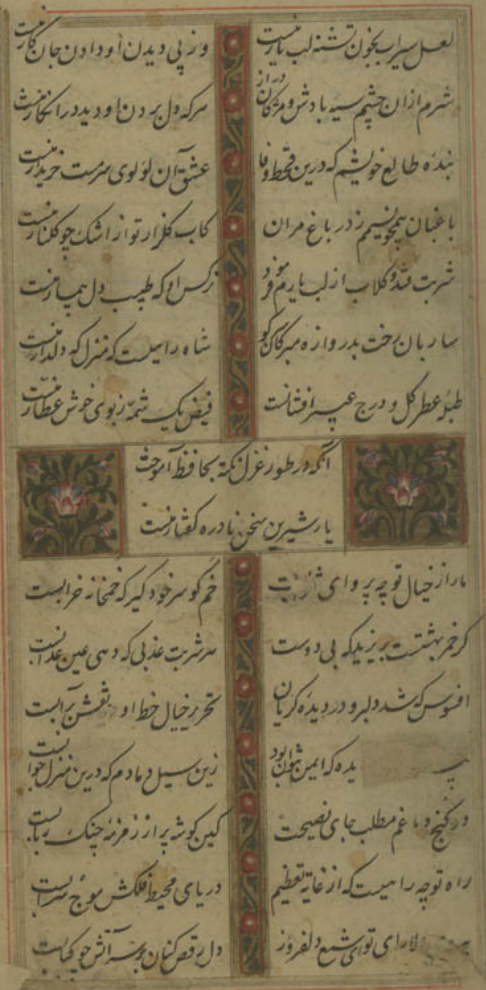 لعل سیراب بخون تشنه لب یار منست
وز پی دیدن او دادن جان کار منست
شرم ازان چشم سیه بادش و مژکان دراز
هرکه دل بردن او دید و در انکار منست
بنده طالع خویشم که درین قحط وفا
عشق آن لولوی سرمست خریدار منست
باغبان همچو نسیمم ز در باغ مران
کاب کلزار تو از اشک چو کلنار منست
شربت قند و کلاب از لب یارم فرمود
نرکس او که طبیب دل بیمار منست
ساربان رخت بدروازه مبر کان سر کو
شاه راهیست که منزل که دلدار منست
طبله عطر کل و درج عبیر افشانست
فیض یک شمه ز بوی خوش عطار منست
آنکه در طور غزل نکته بحافظ آموخت
یار شیرین سخن نادره کفتار منست
مارا ز خیال تو چه پروای شرابست
خم کو سر خود کیر که خمخانه خرابست
کر خمر بهشتست بریزید که بی دوست
هر شربت عذبی که دهی عین عذابست
افسوس که شد دلبر و در دیده کریان
تحریر خیال خط او نقش برآبست
یده که ایمن نتوان بود
زین سیل دمادم که درین منزل خوابست
در کنج دماغم مطلب جای نصیحت
کین کوشه پر از زمزمه چنک و ربابست
راه تو چه راهیست که از غایة تعظیم
دریای محیط فلکش موج سرابست
رای تو ای شمع دلفروز
دل رقص کنان بر سر آتش چو کبابست